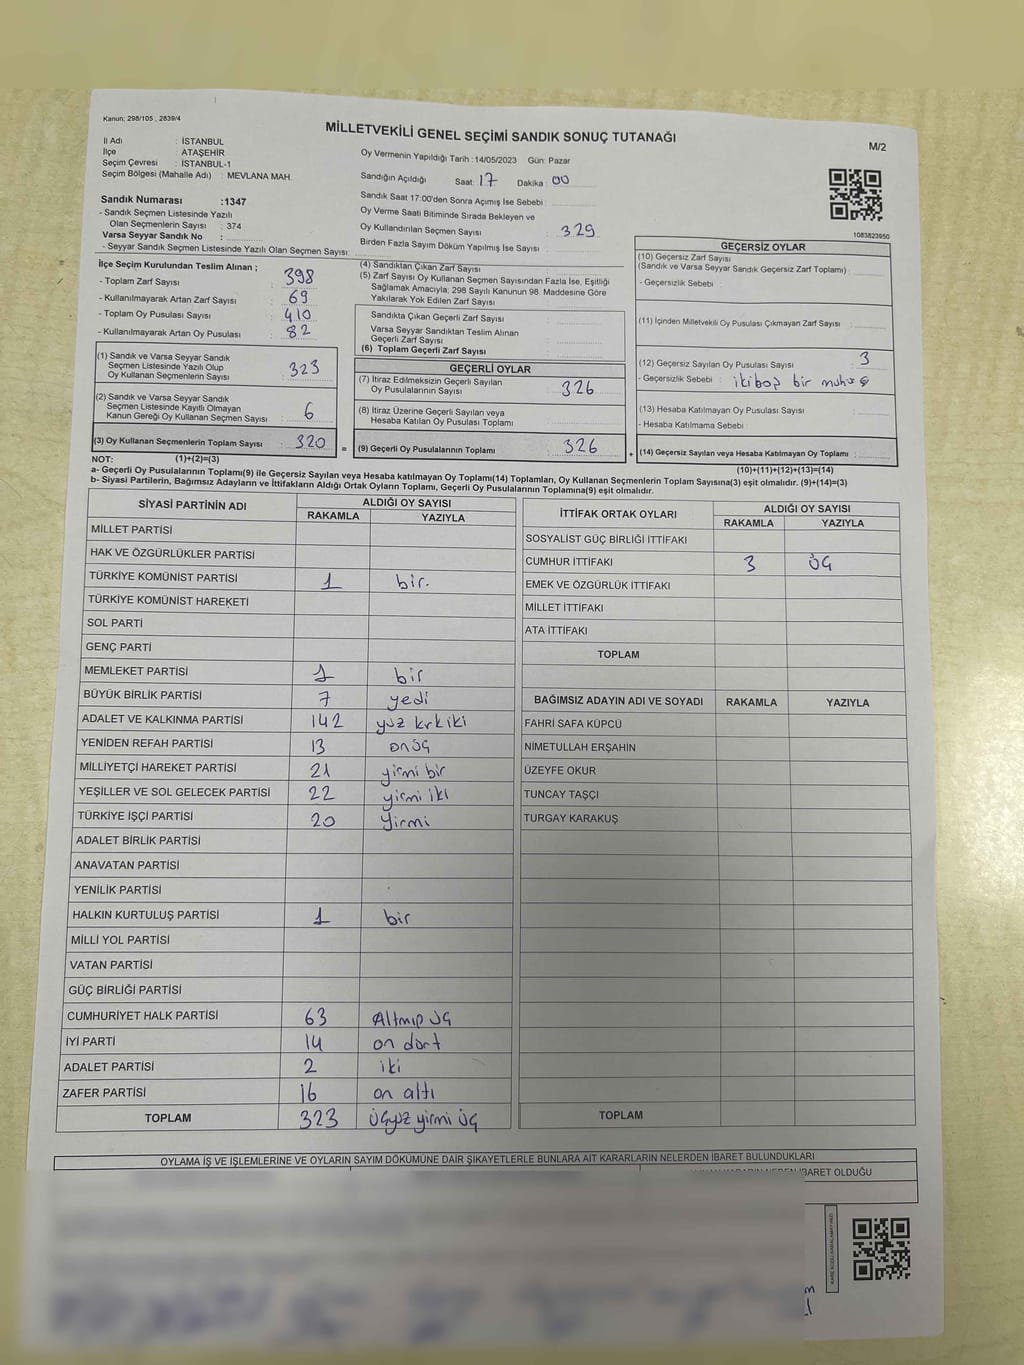 Kanun: 298/105 , 2839/4
MİLLETVEKİLİ GENEL SEÇİMİ SANDIK SONUÇ TUTANAĞI
M/2
İl Adı : İSTANBUL
İlçe : ATAŞEHİR
Seçim Çevresi : İSTANBUL-1
Seçim Bölgesi (Mahalle Adı) : MEVLANA MAH.
Oy Vermenin Yapıldığı Tarih : 14/05/2023 Gün: Pazar
Sandığın Açıldığı Saat: 17 Dakika 00
Sandık Saat 17:00'den Sonra Açımış İse Sebebi :
Oy Verme Saati Bitiminde Sırada Bekleyen ve
Oy Kullandırılan Seçmen Sayısı : 329
Birden Fazla Sayım Döküm Yapılmış İse Sayısı :
1083823950
Sandık Numarası :1347
- Sandık Seçmen Listesinde Yazılı
Olan Seçmenlerin Sayısı : 374
Varsa Seyyar Sandık No :
- Seyyar Sandık Seçmen Listesinde Yazılı Olan Seçmen Sayısı:
İlçe Seçim Kurulundan Teslim Alınan ;
- Toplam Zarf Sayısı : 398
- Kullanılmayarak Artan Zarf Sayısı : 69
- Toplam Oy Pusulası Sayısı : 410
- Kullanılmayarak Artan Oy Pusulası : 82
(1) Sandık ve Varsa Seyyar Sandık
Seçmen Listesinde Yazılı Olup
Oy Kullanan Seçmenlerin Sayısı : 323
(2) Sandık ve Varsa Seyyar Sandık
Seçmen Listesinde Kayıtlı Olmayan
Kanun Gereği Oy Kullanan Seçmen Sayısı : 6
(3) Oy Kullanan Seçmenlerin Toplam Sayısı : 320 =
(4) Sandıktan Çıkan Zarf Sayısı
(5) Zarf Sayısı Oy Kullanan Seçmen Sayısından Fazla İse, Eşitliği
Sağlamak Amacıyla; 298 Sayılı Kanunun 98. Maddesine Göre
Yakılarak Yok Edilen Zarf Sayısı
Sandıkta Çıkan Geçerli Zarf Sayısı :
Varsa Seyyar Sandıktan Teslim Alınan
Geçerli Zarf Sayısı :
(6) Toplam Geçerli Zarf Sayısı :
GEÇERLİ OYLAR
(7) İtiraz Edilmeksizin Geçerli Sayılan
Oy Pusulalarının Sayısı : 326
(8) İtiraz Üzerine Geçerli Sayılan veya
Hesaba Katılan Oy Pusulası Toplamı :
(9) Geçerli Oy Pusulalarının Toplamı : 326 +
GEÇERSİZ OYLAR
(10) Geçersiz Zarf Sayısı
(Sandık ve Varsa Seyyar Sandık Geçersiz Zarf Toplamı) :
- Geçersizlik Sebebi :
(11) İçinden Milletvekili Oy Pusulası Çıkmayan Zarf Sayısı :
(12) Geçersiz Sayılan Oy Pusulası Sayısı : 3
- Geçersizlik Sebebi : ikiboş bir
(13) Hesaba Katılmayan Oy Pusulası Sayısı :
- Hesaba Katılmama Sebebi :
(14) Geçersiz Sayılan veya Hesaba Katılmayan Oy Pusulası Toplamı :
NOT: (1)+(2)=(3)
(10)+(11)+(12)+(13)=(14)
a- Geçerli Oy Pusulalarının Toplamı(9) ile Geçersiz Sayılan veya Hesaba katılmayan Oy Toplamı(14) Toplamları, Oy Kullanan Seçmenlerin Toplam Sayısına(3) eşit olmalıdır. (9)+(14)=(3)
b- Siyasi Partilerin, Bağımsız Adayların ve İttifakların Aldığı Ortak Oyların Toplamı, Geçerli Oy Pusulalarının Toplamına(9) eşit olmalıdır.
SİYASİ PARTİNİN ADI ALDIĞI OY SAYISI
RAKAMLA YAZIYLA
MİLLET PARTİSİ
HAK VE ÖZGÜRLÜKLER PARTİSİ
TÜRKİYE KOMÜNİST PARTİSİ 1 bir.
TÜRKİYE KOMÜNİST HAREKETİ
SOL PARTİ
GENÇ PARTİ
MEMLEKET PARTİSİ 1 bir
BÜYÜK BİRLİK PARTİSİ 7 yedi
ADALET VE KALKINMA PARTİSİ 142 yüz krkiki
YENİDEN REFAH PARTİSİ 13 onüç
MİLLİYETÇİ HAREKET PARTİSİ 21 yirmi bir
YEŞİLLER VE SOL GELECEK PARTİSİ 22 yirmi iki
TÜRKİYE İŞÇİ PARTİSİ 20 Yirmi
ADALET BİRLİK PARTİSİ
ANAVATAN PARTİSİ
YENİLİK PARTİSİ
HALKIN KURTULUŞ PARTİSİ 1 bir
MİLLİ YOL PARTİSİ
VATAN PARTİSİ
GÜÇ BİRLİĞİ PARTİSİ
CUMHURİYET HALK PARTİSİ 63 Altmış üç
İYİ PARTİ 14 on dört
ADALET PARTİSİ 2 iki
ZAFER PARTİSİ 16 on altı
TOPLAM 323 üçyüz yirmi üç
İTTİFAK ORTAK OYLARI ALDIĞI OY SAYISI
RAKAMLA YAZIYLA
SOSYALİST GÜÇ BİRLİĞİ İTTİFAKI
CUMHUR İTTİFAKI 3 üç
EMEK VE ÖZGÜRLÜK İTTİFAKI
MİLLET İTTİFAKI
ATA İTTİFAKI
TOPLAM
BAĞIMSIZ ADAYIN ADI VE SOYADI RAKAMLA YAZIYLA
FAHRİ SAFA KÜPCÜ
NİMETULLAH ERŞAHİN
ÜZEYFE OKUR
TUNCAY TAŞÇI
TURGAY KARAKUŞ
TOPLAM
OYLAMA İŞ VE İŞLEMLERİNE VE OYLARIN SAYIM DÖKÜMÜNE DAİR ŞİKAYETLERLE BUNLARA AİT KARARLARIN NELERDEN İBARET BULUNDUKLARI
NEDEN İBARET OLDUĞU